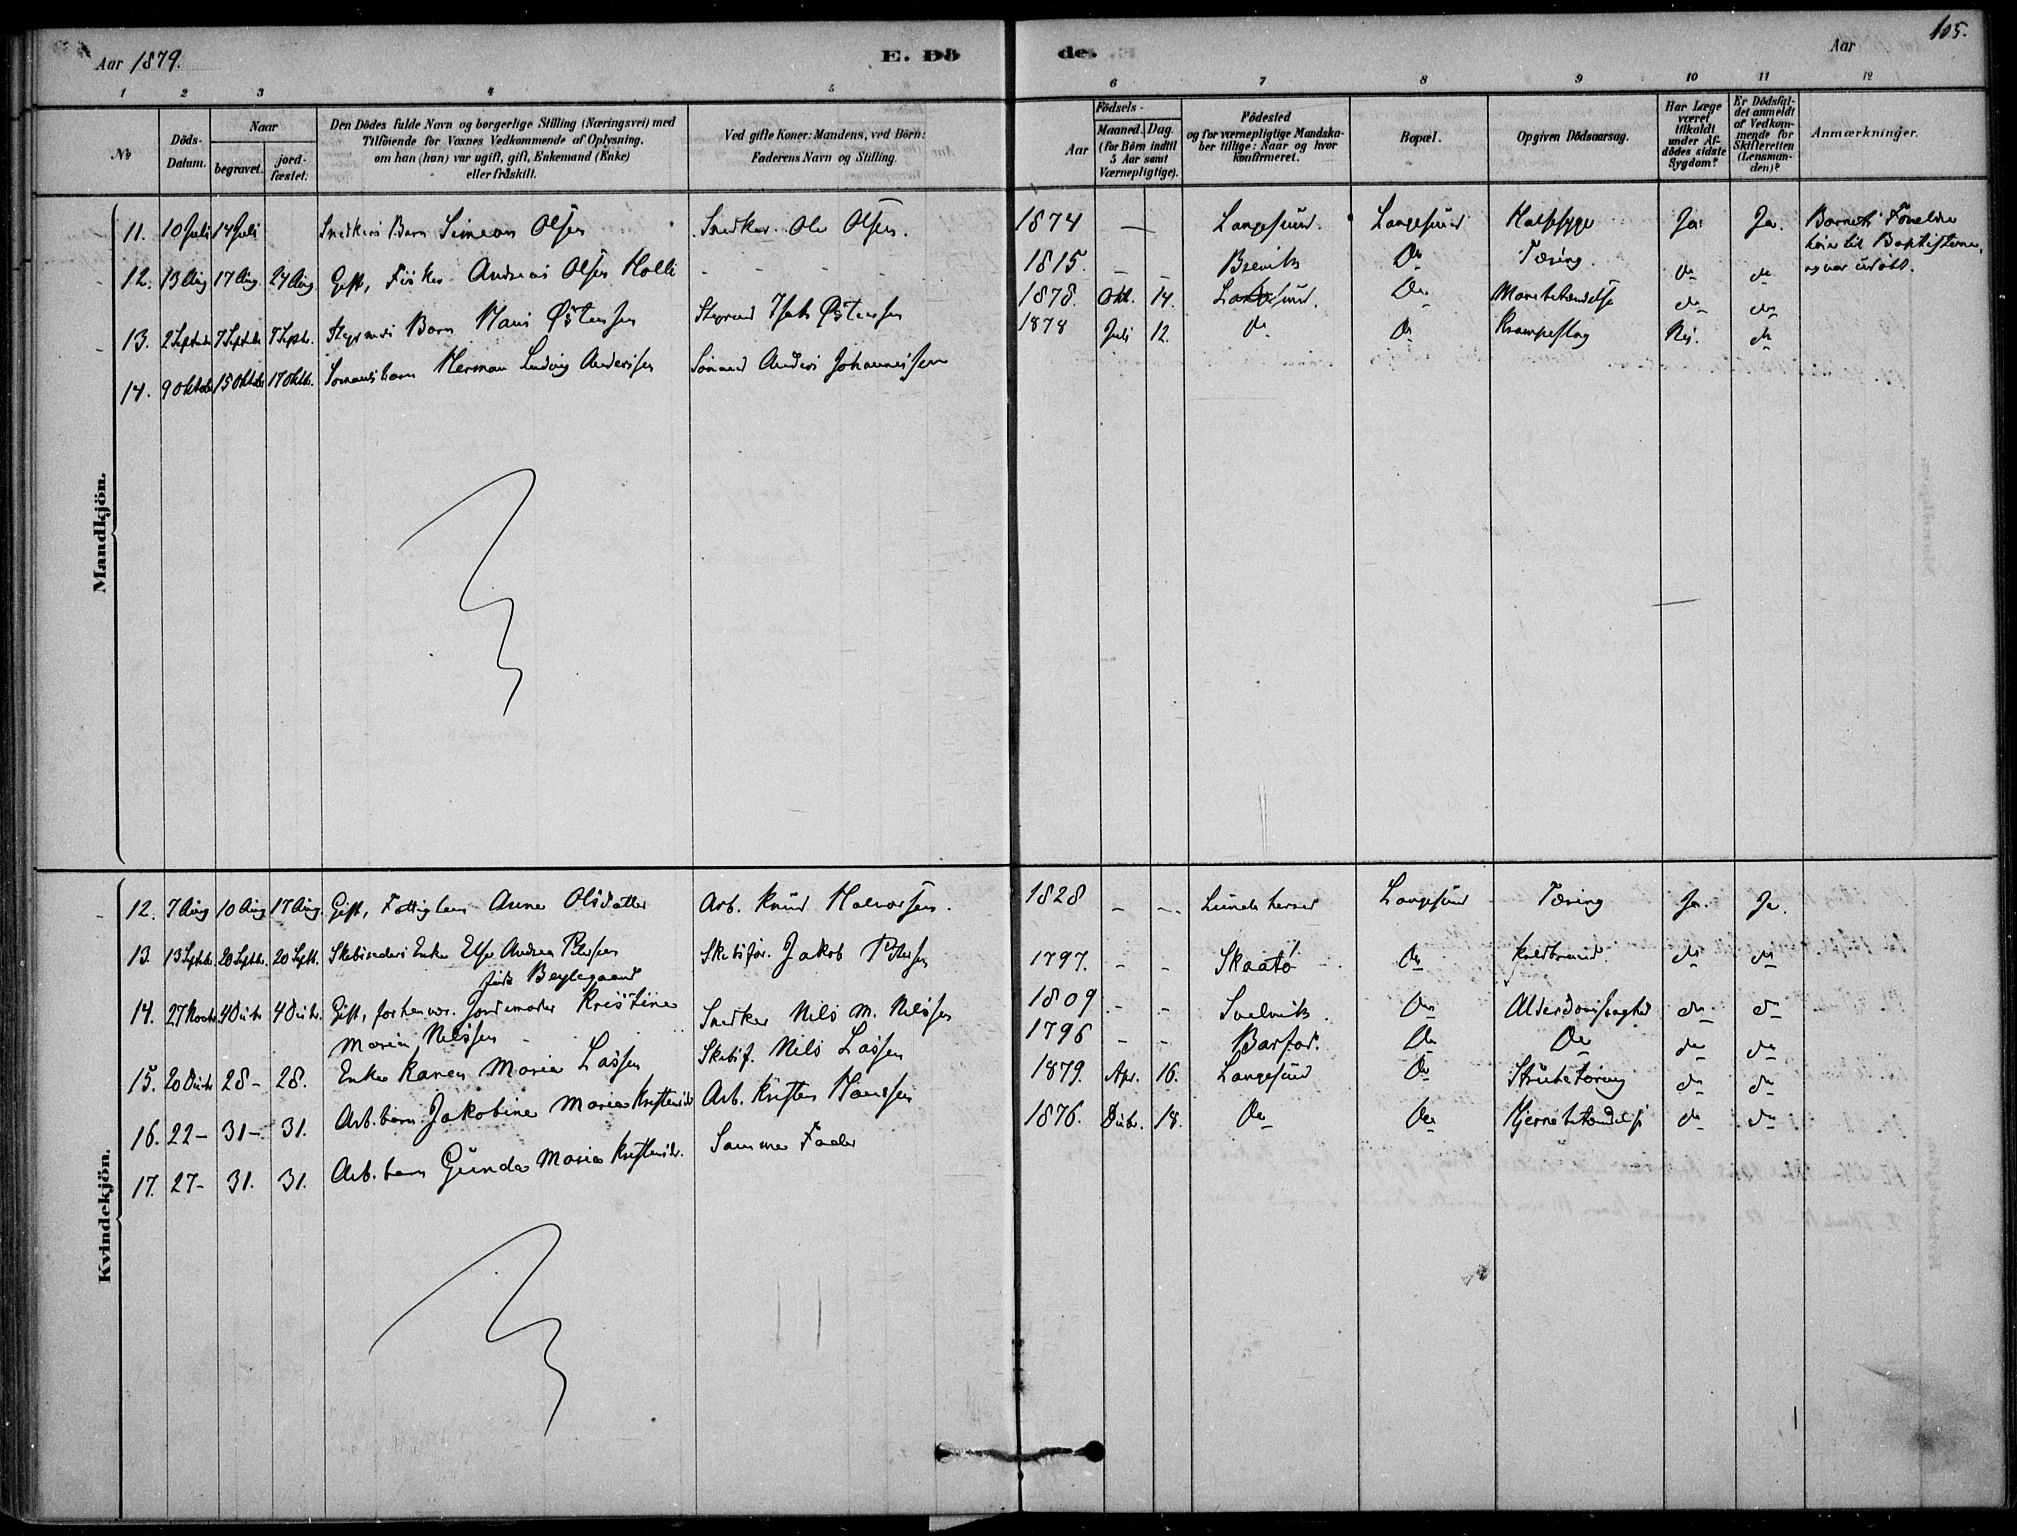 Aar 1879.
E. Dö
de.
Aar
105.
1 2 3 4 5 6 7 8 9 10 11 12
No
Döds-
Datum.
Naar
begravet.
jord-
fæstet.
Den Dödes fulde Navn og borgerlige Stilling (Næringsvei) med
Tilföiende for Voxnes Vedkommende af Oplysning,
om han (hun) var ugift, gift, Enkemand (Enke)
eller fraskilt.
Ved gifte Koner: Mandens, ved Börn:
Faderens Navn og Stilling.
Födsels-
Aar
Maaned. Dag.
(for Börn indtil
5 Aar samt
Værnepligtige).
Födested
og for værnepligtige Mandska-
ber tillige: Naar og hvor
konfirmeret.
Bopæl.
Opgiven Dödsaarsag.
Har Læge
været
tilkaldt
under Af-
dödes sidste
Sygdom?
Er Dödsfal-
det anmeldt
af Vedkom-
mende for
Skifteretten
(Lensman-
den)?
Anmærkninger.
Mandkjön.
11. 10 Juli 14 Juli Snedkers Barn Simeon Olsen Snedker Ole Olsen. 1874 — Langesund. Langesund Halssyge Ja. Ja. Barnets Forældre
hører til Baptisterne
og var udöbt.
12. 13 Aug 17 Aug. 24 Aug. Gift, Fisker Andreas Olsen Holli - - - - 1815. - - Brevik Do Tæring. do do
13. 2 Septbr 7 Septbr 7 Septbr. Styrmds Barn Hans Østensen Styrmd Isak Østensen 1878. Okt. 14. Langesund. Do Mavebetændelse do do
14. 9 Oktob 15 Oktbr 17 Oktbr. Sömandsbarn Herman Ludvig Anderssen Sömand Anders Johannessen 1878 Juli 12. do Do Krampeslag Nei. do
Kvindekjön.
12. 7 Aug 10 Aug 17 Aug. Gift, Fattiglem Anne Olsdatter Arb. Knud Halvorsen. 1828 - - Lundeherred Langesund Tæring Ja. Ja.
13. 13 Septbr. 20 Septbr. 20 Septb. Skibsreders Enke Else Andrea Petersen
født Beylegaard Skibsför. Jakob Petersen 1797. - - Skaatö Do Koldbrand. do do
14. 27 Novbr 4 Debr 4 Debr. Gift, forhenvær. Jordemoder Kristine
Maria Nilssen Snedker Nils M. Nilssen 1809 - - Svelvik. Do Alderdomssvaghed do do
15. 20 Debr 28 - 28. Enke Karen Maria Lassen Skibsf. Nils Lassen 1796 - - Do Do do do
16. 22 - 31 - 31. Arb. barn Jakobine Maria Kristensdr Arb. Kristen Hanssen 1879. Apr. 16. Langesund Do Strubetæring do do
17. 27 - 31. 31. Arb. barn Gunda Maria Kristensdr. Samme Fader 1876. Debr. 18. Do Do Hjernebetændelse do do